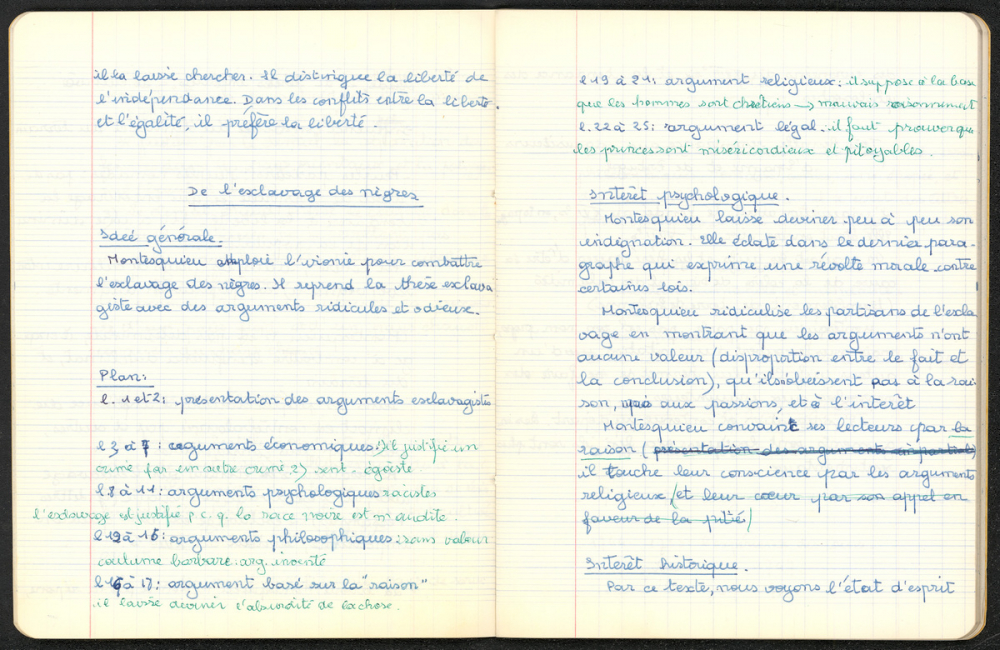 il la laisse chercher. Il distingue la liberté de
l'indépendance. Dans les conflits entre la liberté
et l'égalité, il préfère la liberté.
De l'esclavage des nègres
Ideé générale.
Montesquieu emploie l'vionie pour combattre
l'esclavage des nègres. Il reprend la thèse esclava
giste avec des arguments ridicules et odieux.
Plan:
l. 1 et 2: présentation des arguments esclavagistes
l 3 à 7: arguments économiques: 1) il justifie un
crime par un autre crime 2) sent. égoiste
l. 8 à 11: arguments psychologiques racistes
l'esclavage est justifié p c. q. la race noire est maudite.
l 12 à 15: arguments philosophiques: sans valeur
coutume barbare. arg. inventé
l 16 à 17: argument basé sur la "raison"
il laisse deviner l'absurdité de la chose.
l 19 à 21: argument religieux: il suppose à la base
que les hommes sont chrétiens → mauvais raisonnement
l. 22 à 25: argument légal. il faut prouver que
les princes sont miséricordieux et pitoyables.
Intérêt psychologique.
Montesquieu laisse deviner peu à peu son
indignation. Elle éclate dans le dernier para-
graphe qui exprime une révolte morale contre
certaines lois.
Montesquieu ridiculise les partisans de l'escla
vage en montrant que les arguments n'ont
aucune valeur (disproportion entre le fait et
la conclusion), qu'ils obéissent pas à la rai-
son, mais aux passions, et à l'intérêt
Montesquieu convainc ses lecteurs par la
raison (présentation des arguments impartiale)
il touche leur conscience par les arguments
religieux (et leur cœur par son appel en
faveur de la pitié)
Intérêt historique.
Par ce texte, nous voyons l'état d'esprit